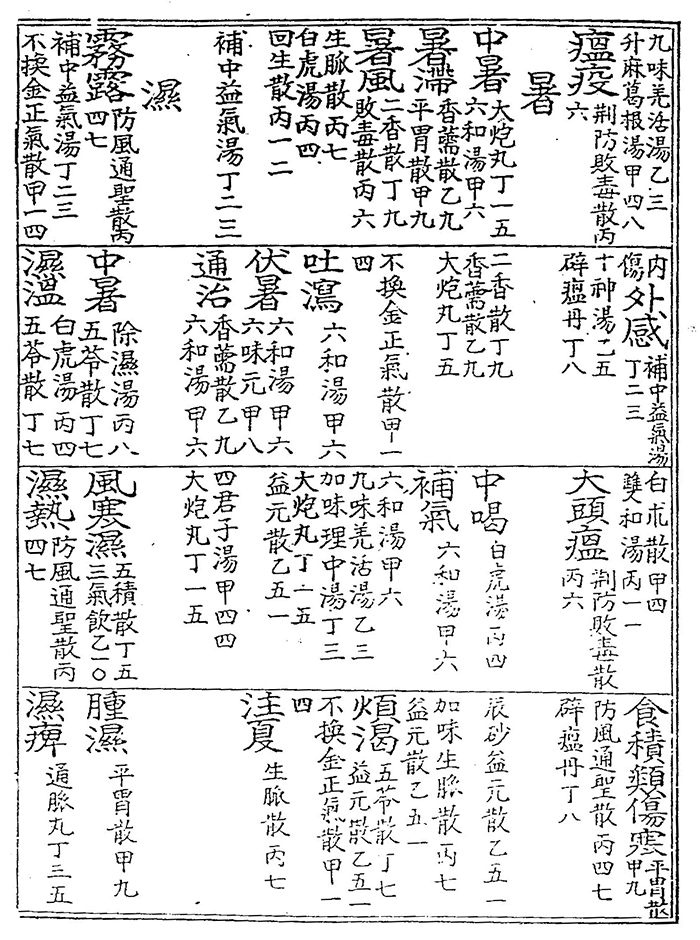 九味羌活湯乙三
升麻葛根湯甲四八
瘟疫 荆防敗毒散丙六
暑
中暑 大炮丸丁一五
六和湯甲六
暑滯 香薷散乙九
平胃散甲九
暑風 二香散丁九
敗毒散丙六
生脉散丙七
白虎湯丙四
回生散丙一二
補中益氣湯丁二三
濕
霧露 防風通聖散丙四七
補中益氣湯丁二三
不換金正氣散甲一四
内傷外感 補中益氣湯丁二三
十神湯乙五
辟瘟丹丁八
二香散丁九
香薷散乙九
大炮丸丁五
不換金正氣散甲一四
吐瀉 六和湯甲六
伏暑 六和湯甲六
六味元甲八
通治 香薷散乙九
六和湯甲六
中暑 除濕湯丙八
五苓散丁七
濕溫 白虎湯丙四
五苓散丁七
白朮散甲四
雙和湯丙一一
大頭瘟 荆防敗毒散丙六
中暍 白虎湯丙四
補氣 六和湯甲六
六和湯甲六
九味羌活湯乙三
加味理中湯丁三
大炮丸丁一五
益元散乙五一
四君子湯甲四四
大炮丸丁一五
風寒濕 五積散丁五
三氣飲乙一〇
濕熱 防風通聖散丙四七
食積類傷寒 平胃散甲九
防風通聖散丙四七
辟瘟丹丁八
辰砂益元散乙五一
加味生脉散丙七
益元散乙五一
煩渴 五苓散丁七
益元散乙五一
不換金正氣散甲一四
注夏 生脉散丙七
腫濕 平胃散甲九
濕痺 通脉丸丁三五